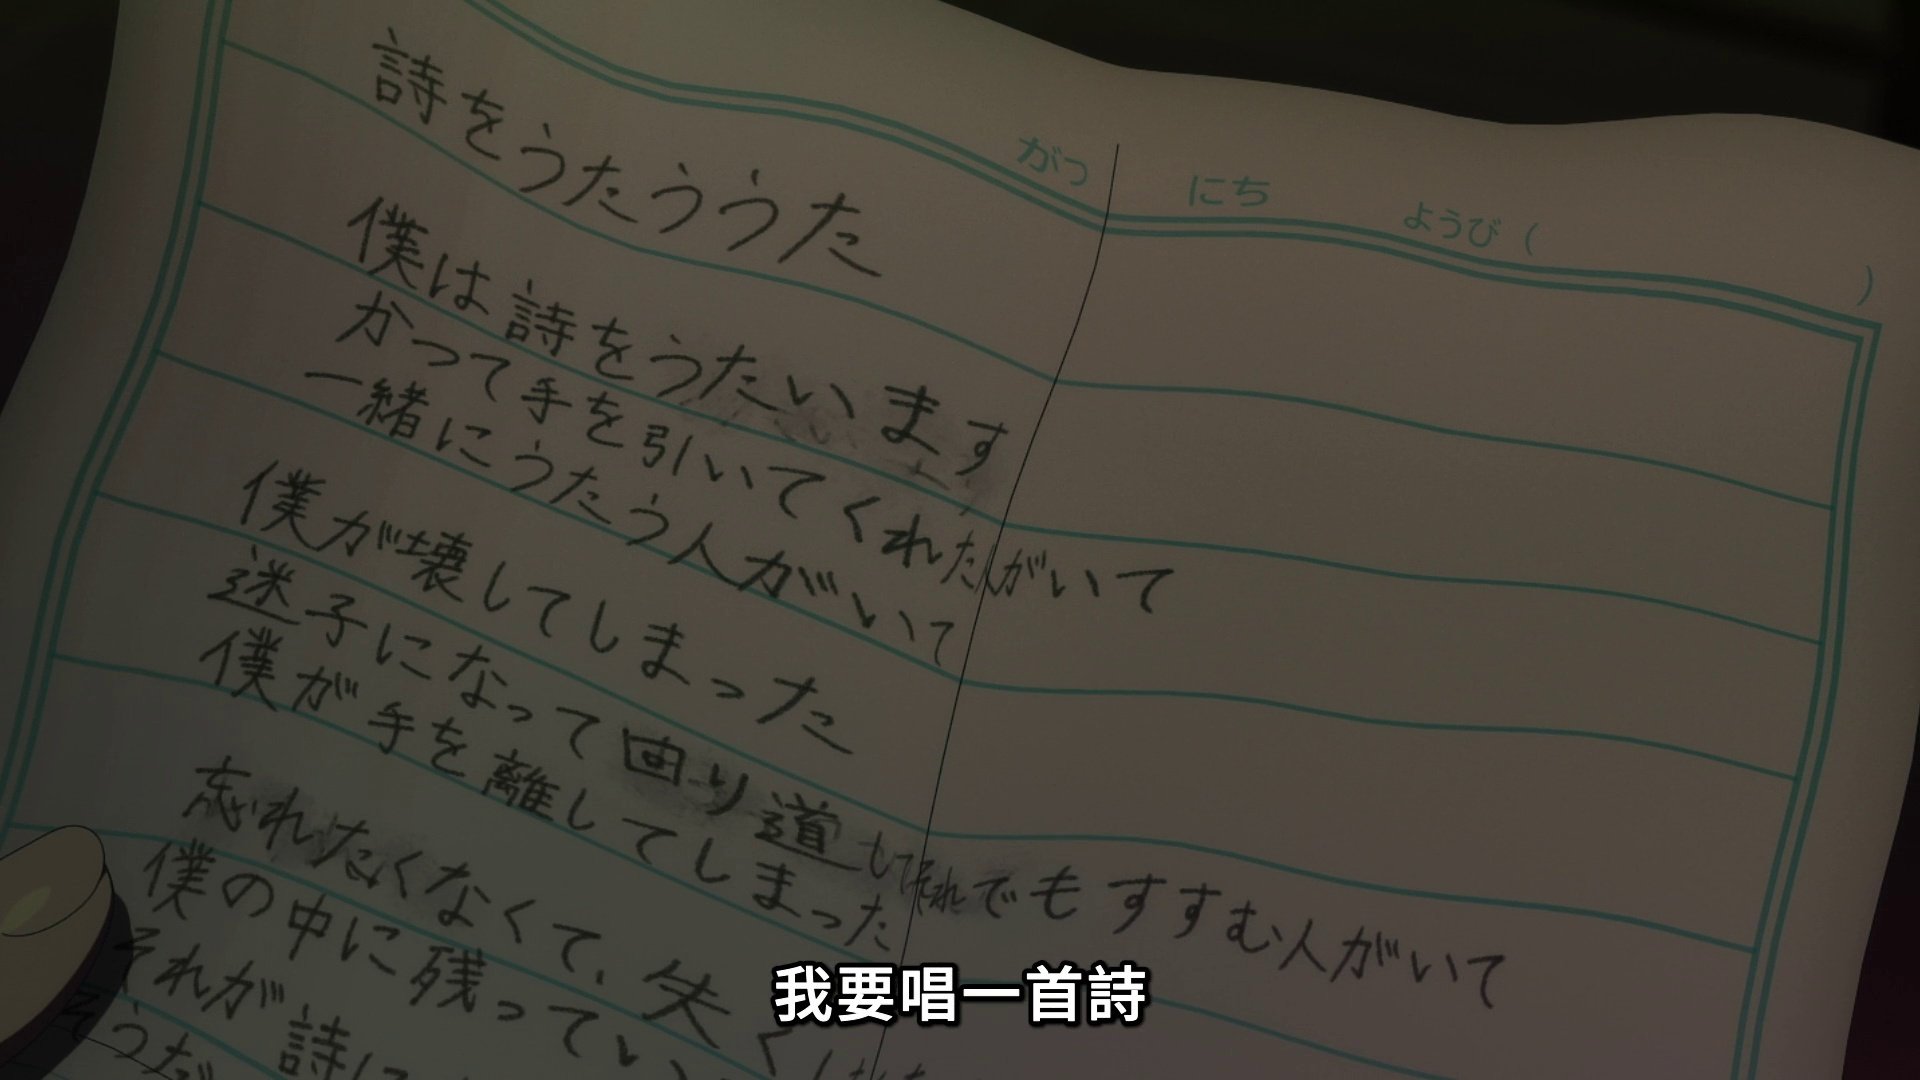 がつ にち ようび ( )
詩をうたううた
僕は詩をうたいます
かつて手を引いてくれた人がいて
一緒にうたう人がいて
僕が壊してしまった
迷子になって回り道してそれでもすすむ人がいて
僕が手を離してしまった
忘れたくなくて、失くし
僕の中に残ってい
それが詩に
そうだ
我要唱一首詩